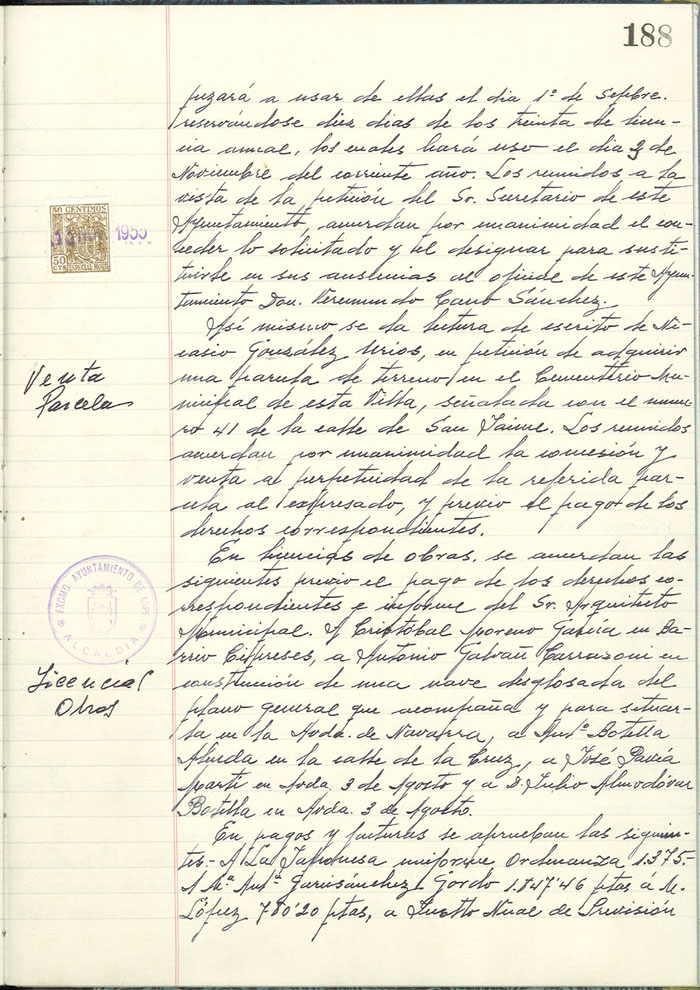 188
pezará a usar de ellas el dia 1º de Sepbre.
reservándose diez dias de los treinta de licen-
cia anual, los cuales hará uso el dia 3 de
Noviembre del corriente año. Los reunidos a la
vista de la petición del Sr. Secretario de este
Ayuntamiento, acuerdan por unanimidad el con-
ceder lo solicitado y el designar para susti-
tuirle en sus ausencias al oficial de este Ayun-
tamiento Don. Veremundo Cano Sánchez.
50 CENTIMOS
1955
50
CTS
ESPECIAL MOVIL
Así mismo se da lectura de escrito de Ni-
casio González Urios, en petición de adquirir
una parcela de terreno en el Cementerio Mu-
nicipal de esta Villa, señalada con el nume-
ro 41 de la calle de San Jaime. Los reunidos
acuerdan por unanimidad la concesión y
venta a perpetuidad de la referida par-
cela al expresado, y previo el pago de los
derechos correspondientes.
Venta
Parcela
En licencias de obras. se acuerdan las
siguientes previo el pago de los derechos co-
rrespondientes e informe del Sr. Arquitecto
Municipal. A Cristóbal Moreno García en Ba-
rrio Cipreses, a Antonio Galvañ Carrasoni en
construcción de una nave desglosada del
plano general que acompaña y para situar-
la en la Avda. de Navarra, a Antº Botella
Almida en la calle de la Cruz, a José Pavía
Martí en Avda. 3 de Agosto y a D. Julio Almodóvar
Botella en Avda. 3 de Agosto.
EXCMO AYUNTAMIENTO DE
ALCALDIA
Licencias
Obras
En pagos y facturas se aprueban las siguien-
tes.- A La Japonesa uniforme Ordenanza 1.375.-
A Mª Antª Garisánchez Gordo 1.847'46 ptas á M.
López 780'20 ptas, a Instto Nnal de Previsión